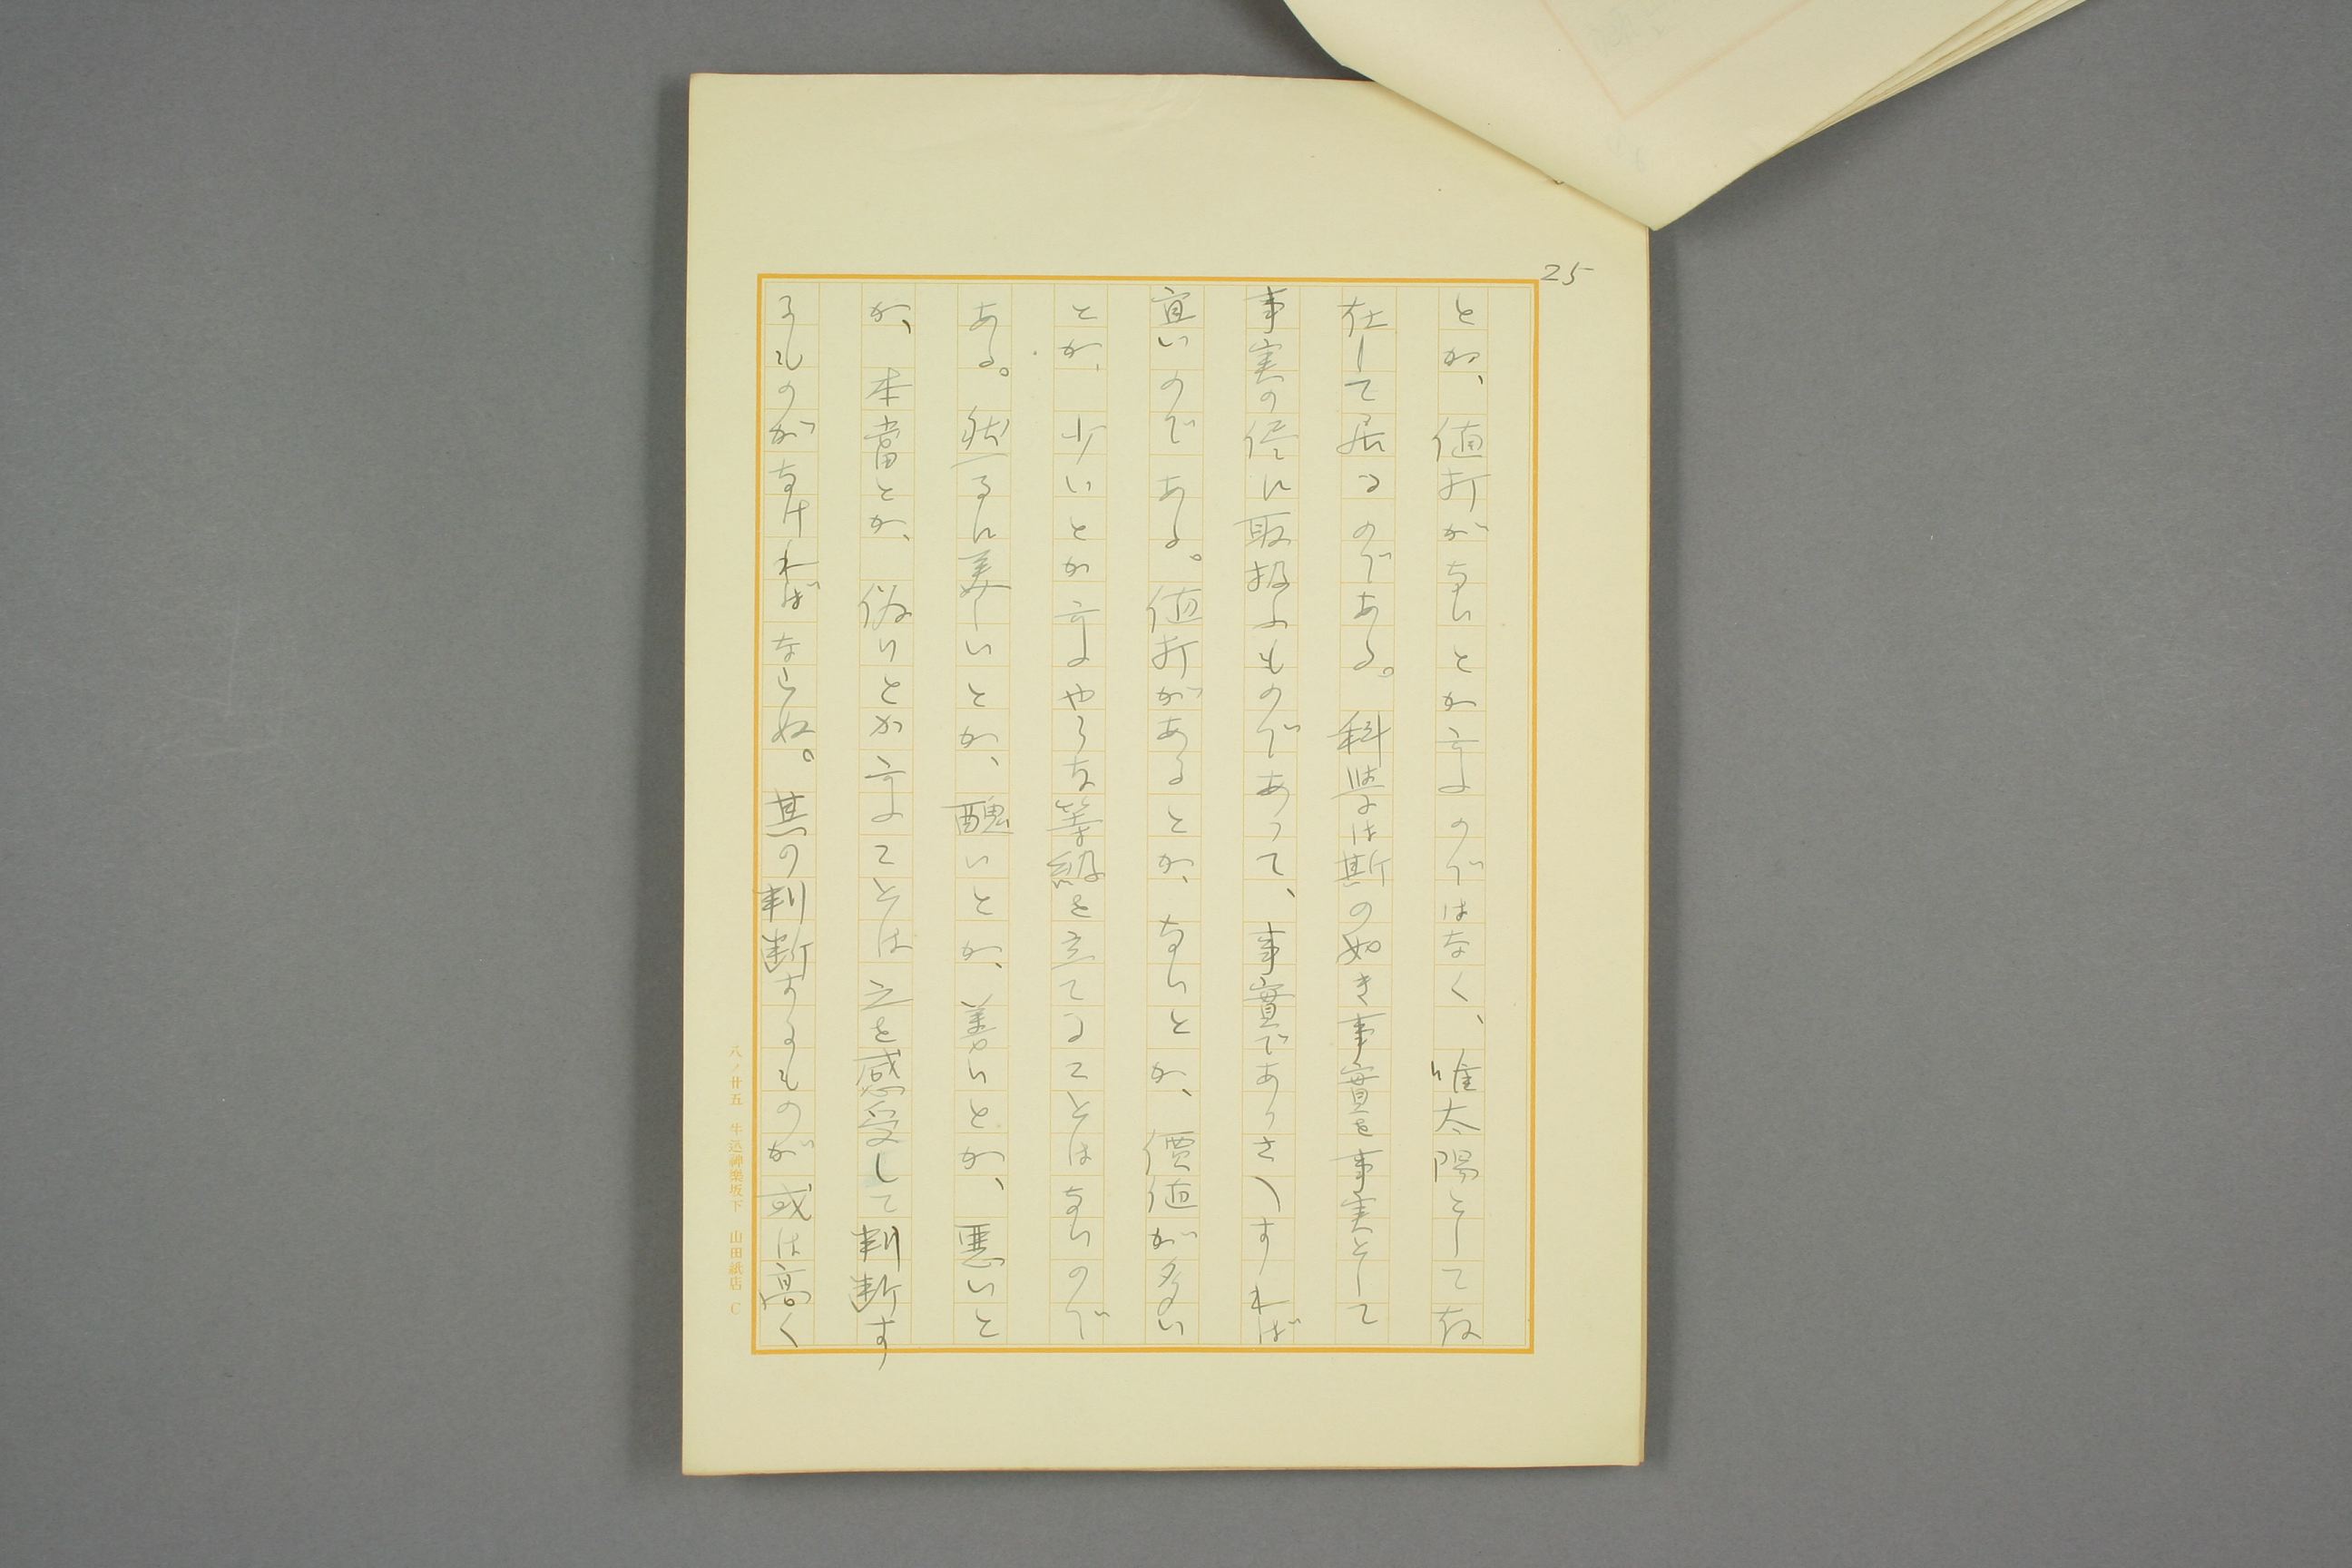 25
とか、値打がないとか言ふのではなく、唯太陽として存
在して居るのである。科学は斯の如き事實を事実として
事実の侭に取扱ふものであって、事實でありさへすれば
宜いのである。値打があるとか、ないとか、價値が多い
とか、少いとか言ふやうな等級を立てることはないので
ある。然るに美しいとか、醜いとか、善いとか、悪いと
か、本當とか、偽りとか言ふことは之を感受して判断す
るものがなければならぬ。其の判断するものが或は高く
八ノ廿五 牛込神楽坂下 山田紙店 C